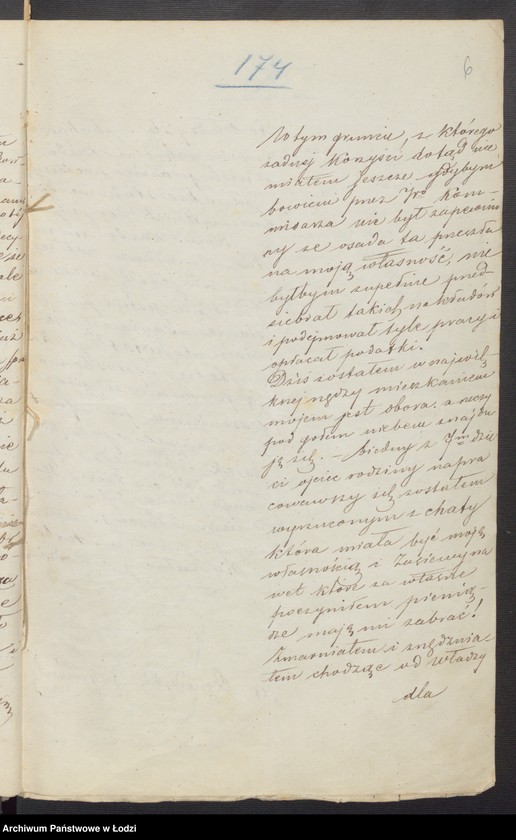 174
6
W tym gruncie, z którego
żadnej korzyści dotąd nie
miałem jeszcze gdybym
bowiem przez Jro Kom-
misarza nie był zapewnio
ny że osada ta przeszła
na moją własność, nie
byłbym zupełnie przed
siebrał takich nakładów
i podejmował tyle pracy i
opłacał podatki.
Dziś zostałem w najwięk-
kszej nędzy mieszkaniem
mojem jest obora, a rzeczy
pod gołem niebem znajdu
ją się. – Biedny z 7m dzie
ci ojciec rodziny napra
cowawszy się zostałem
wyrzuconym z chaty
która miała być moją
własnością i Zasiewy na
wet które za własne
poczyniłem pienią-
dze mają mi zabrać!
Zmarniałem i znędznia-
łem chodząc od Władzy
dla
Archiwum Państwowe w Łodzi